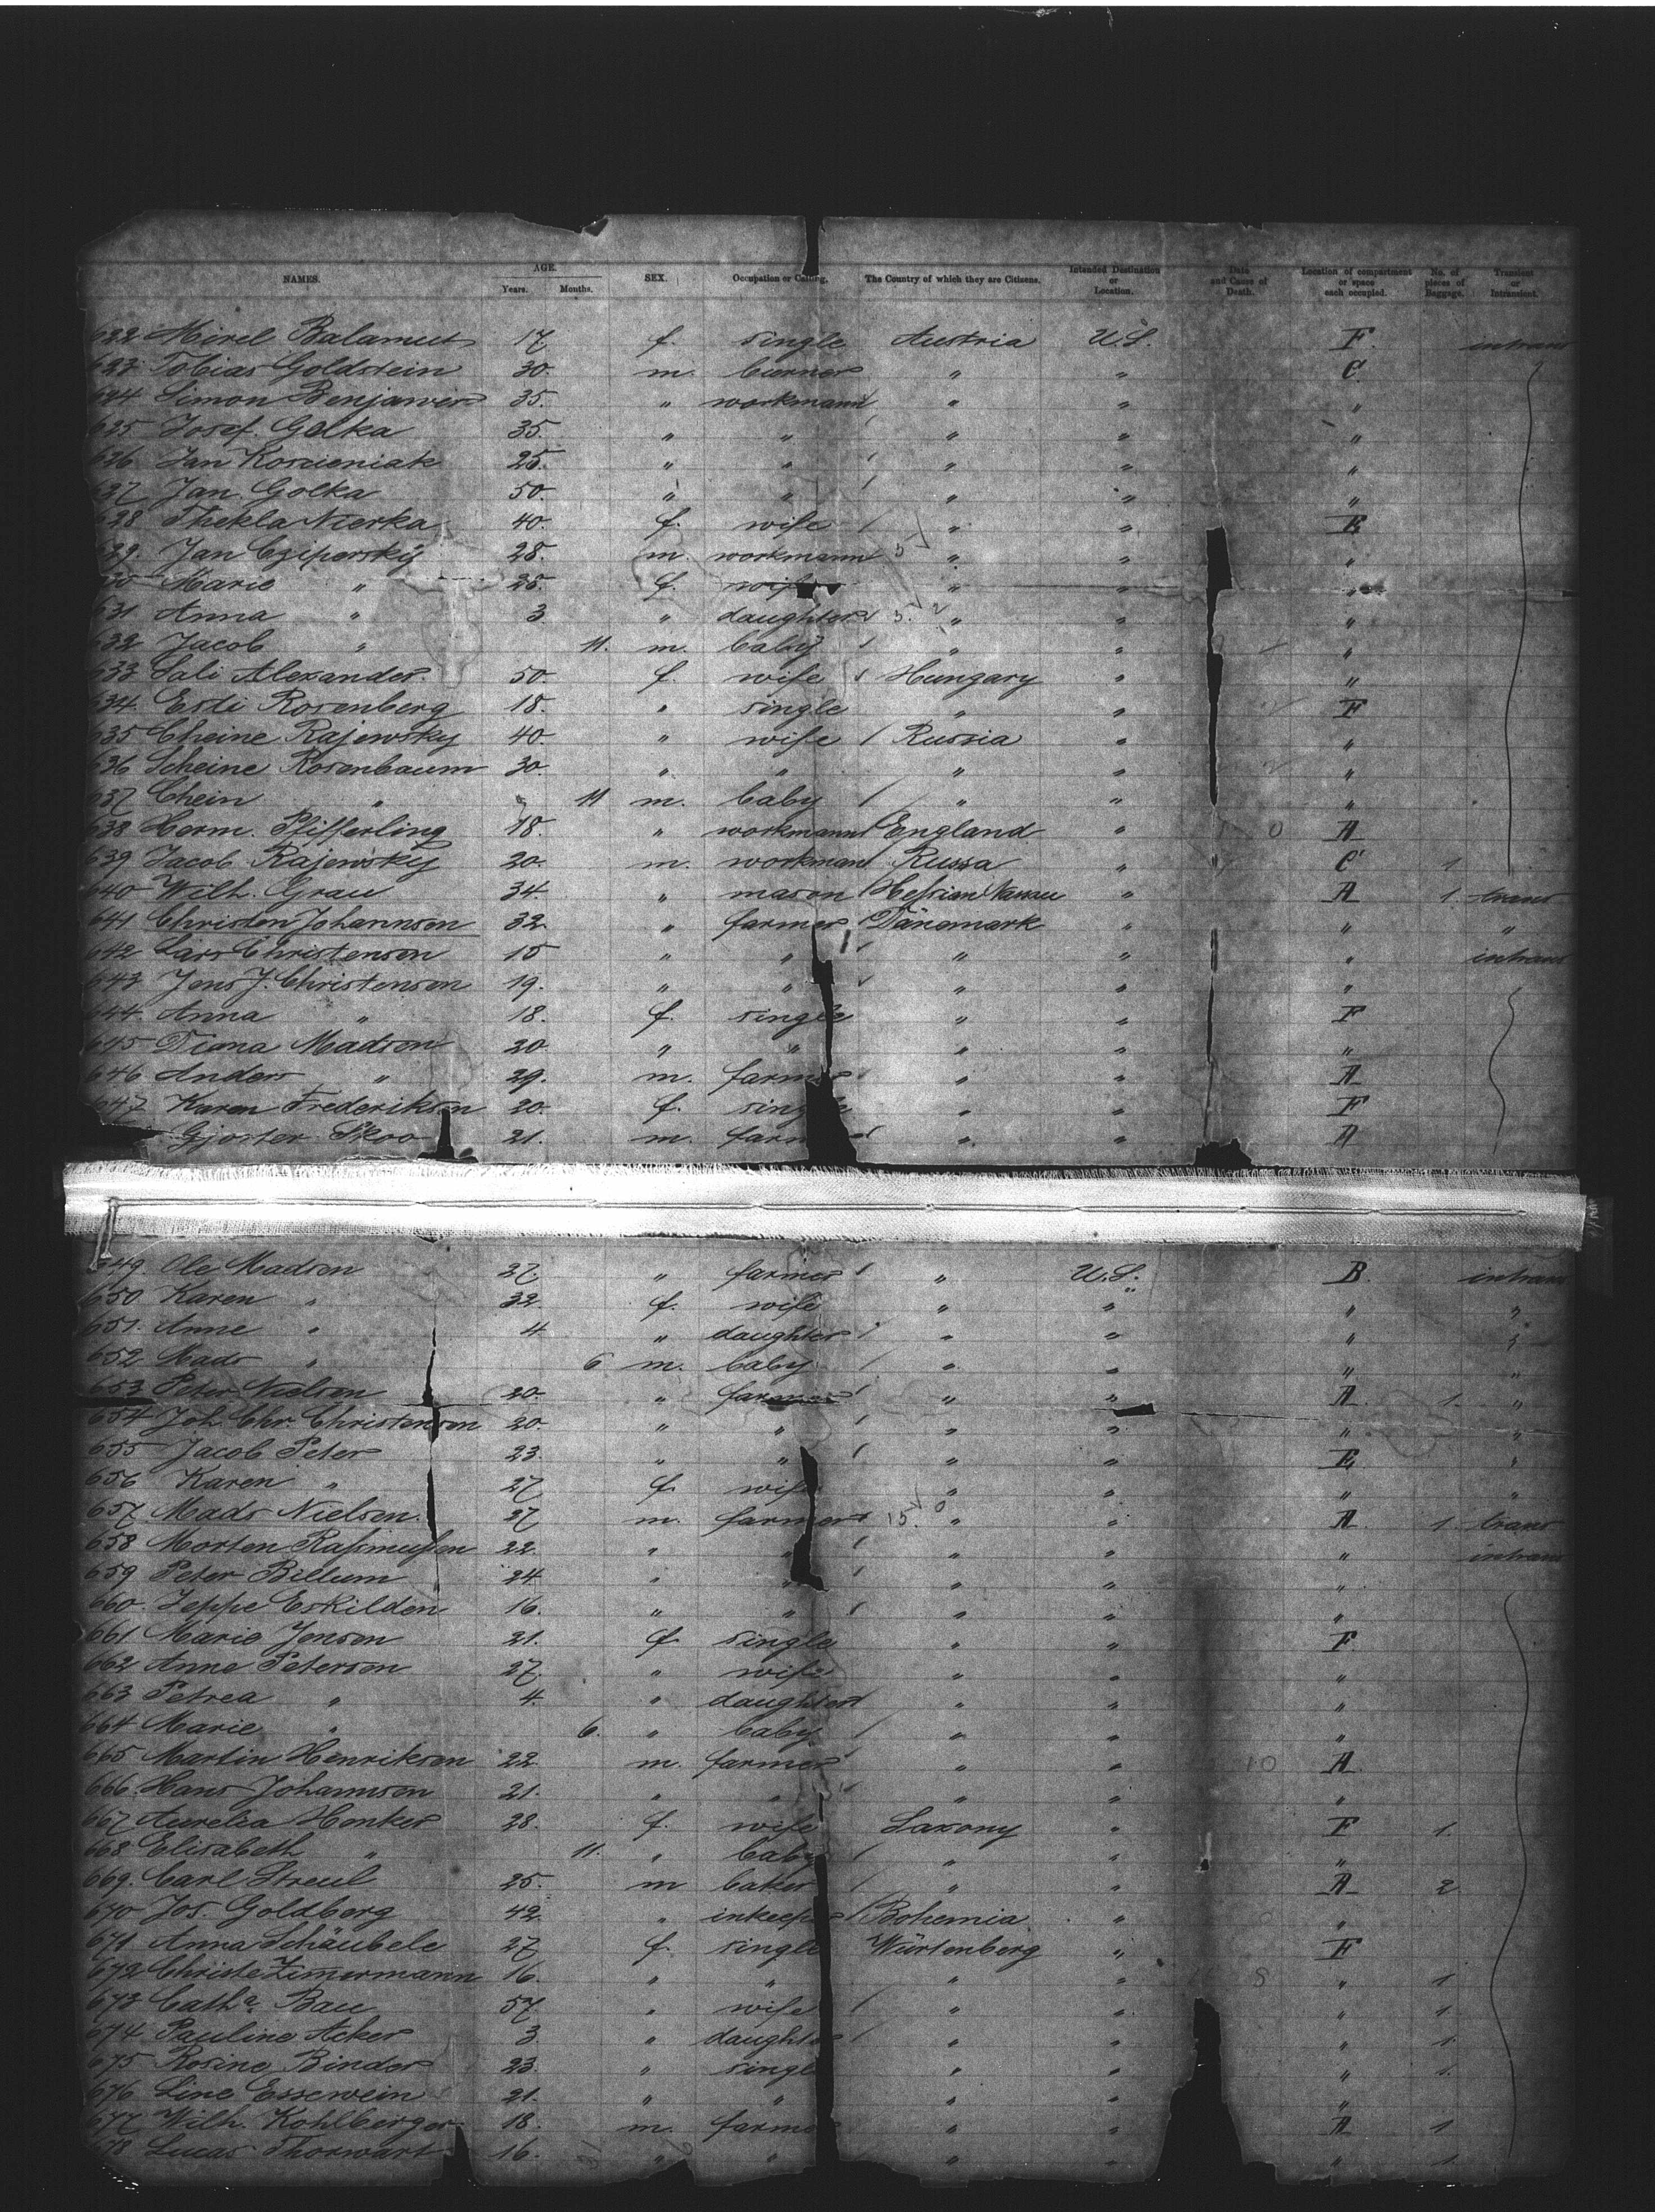 NAMES. AGE. Years. Months. SEX. Occupation or Calling. The Country of which they are Citizens. Intended Destination or Location. Date and Cause of Death. Location of compartment or space each occupied. No. of pieces of Baggage. Transient or Intransient.
622 Mirel Balamut 17 f. single Austria U.S. F. intrans
623 Tobias Goldstein 30. m. " " C.
624 Simon Benjamin 35. " workmann " " "
625 Josef Golka 35. " " " " "
626 Jan Koscieniak 25. " " " " "
637 Jan Golka 50. " " " " "
628 Thekla Nierka 40. f. wife " " E
629. Jan Cziperský 28. m. workmann " " "
630 Marie " 25. f. wife " " "
631 Anna " 3 " daughter " " "
632 Jacob " 11. m. baby " " "
633 Sali Alexander 50. f. wife Hungary " "
634. Esti Rosenberg 18. " single " " F
635 Cheine Rajewsky 40. " wife Russia " "
636 Scheine Rosenbaum 30. " " " " "
637 Chein " 11 m. baby " " "
638 Herm. Pfifferling 18. " workmann England " A
639 Jacob Rajewsky 20. m. workman Russa " C 1
640 Wilh. Grau 34. " mason Hessian Nassau " A 1. trans
641 Christen Johannsen 32. " farmer Dänemark " " "
642 Lars Christensen 15 " " " " " intrans
643 Jens J. Christensen 19. " " " " "
644. Anna " 18. f. single " " F
645 Diana Madsen 20 " " " " "
646 Anders " 29. m. farmer " " A
647 Karen Frederiksen 20. f. single " " F
Gjoster Skoo 21. m. farmer " " A
649. Ole Madsen 27. " farmer " U.S. B. intrans
650. Karen " 32 f. wife " " " "
651. Anne " 4 " daughter " " " "
652 Mads " 6 m. baby " " " "
653 Peter Nielsen 20. " farmer " " A 1. "
654 Joh. Chr. Christensen 20. " " " " " "
655 Jacob Peter 23. " " " " E "
656 Karen " 27 f. wife " " " "
657 Mads Nielsen. 27 m. farmer " " A 1. trans
658 Morten Rasmussen 22. " " " " " intrans
659 Peter Billum 24 " " " " "
660. Jeppe Eskilden 16. " " " " "
661 Marie Jensen 21. f. single " " F
662 Anne Petersen 27. " wife " " "
663 Petrea " 4. " daughter " " "
664 Marie " 6. " baby " " "
665 Martin Henriksen 22 m. farmer " " A
666. Hans Johannsen 21. " " " " "
667 Aurelia Henker 28. f. wife Saxony " F 1.
668 Elisabeth " 11. " baby " " "
669. Carl Streul 25. m baker " " A 2
670 Jos. Goldberg 42 " inkeeper Bohemia " "
671 Anna Schäubele 27 f. single Würtenberg " F
672 Christe Zimermann 16. " " " " " 1
673 Catha. Bau 57. " wife " " " 1
674 Pauline Acker 3. " daughter " " " 1.
675 Rosine Binder 23. " single " " " 1.
676 Line Essewein 21. " " " " "
677 Wilh. Kohlberger 18. m. farmer " " A 1
678 Lucas Thorwart 16. " " " " " 1.